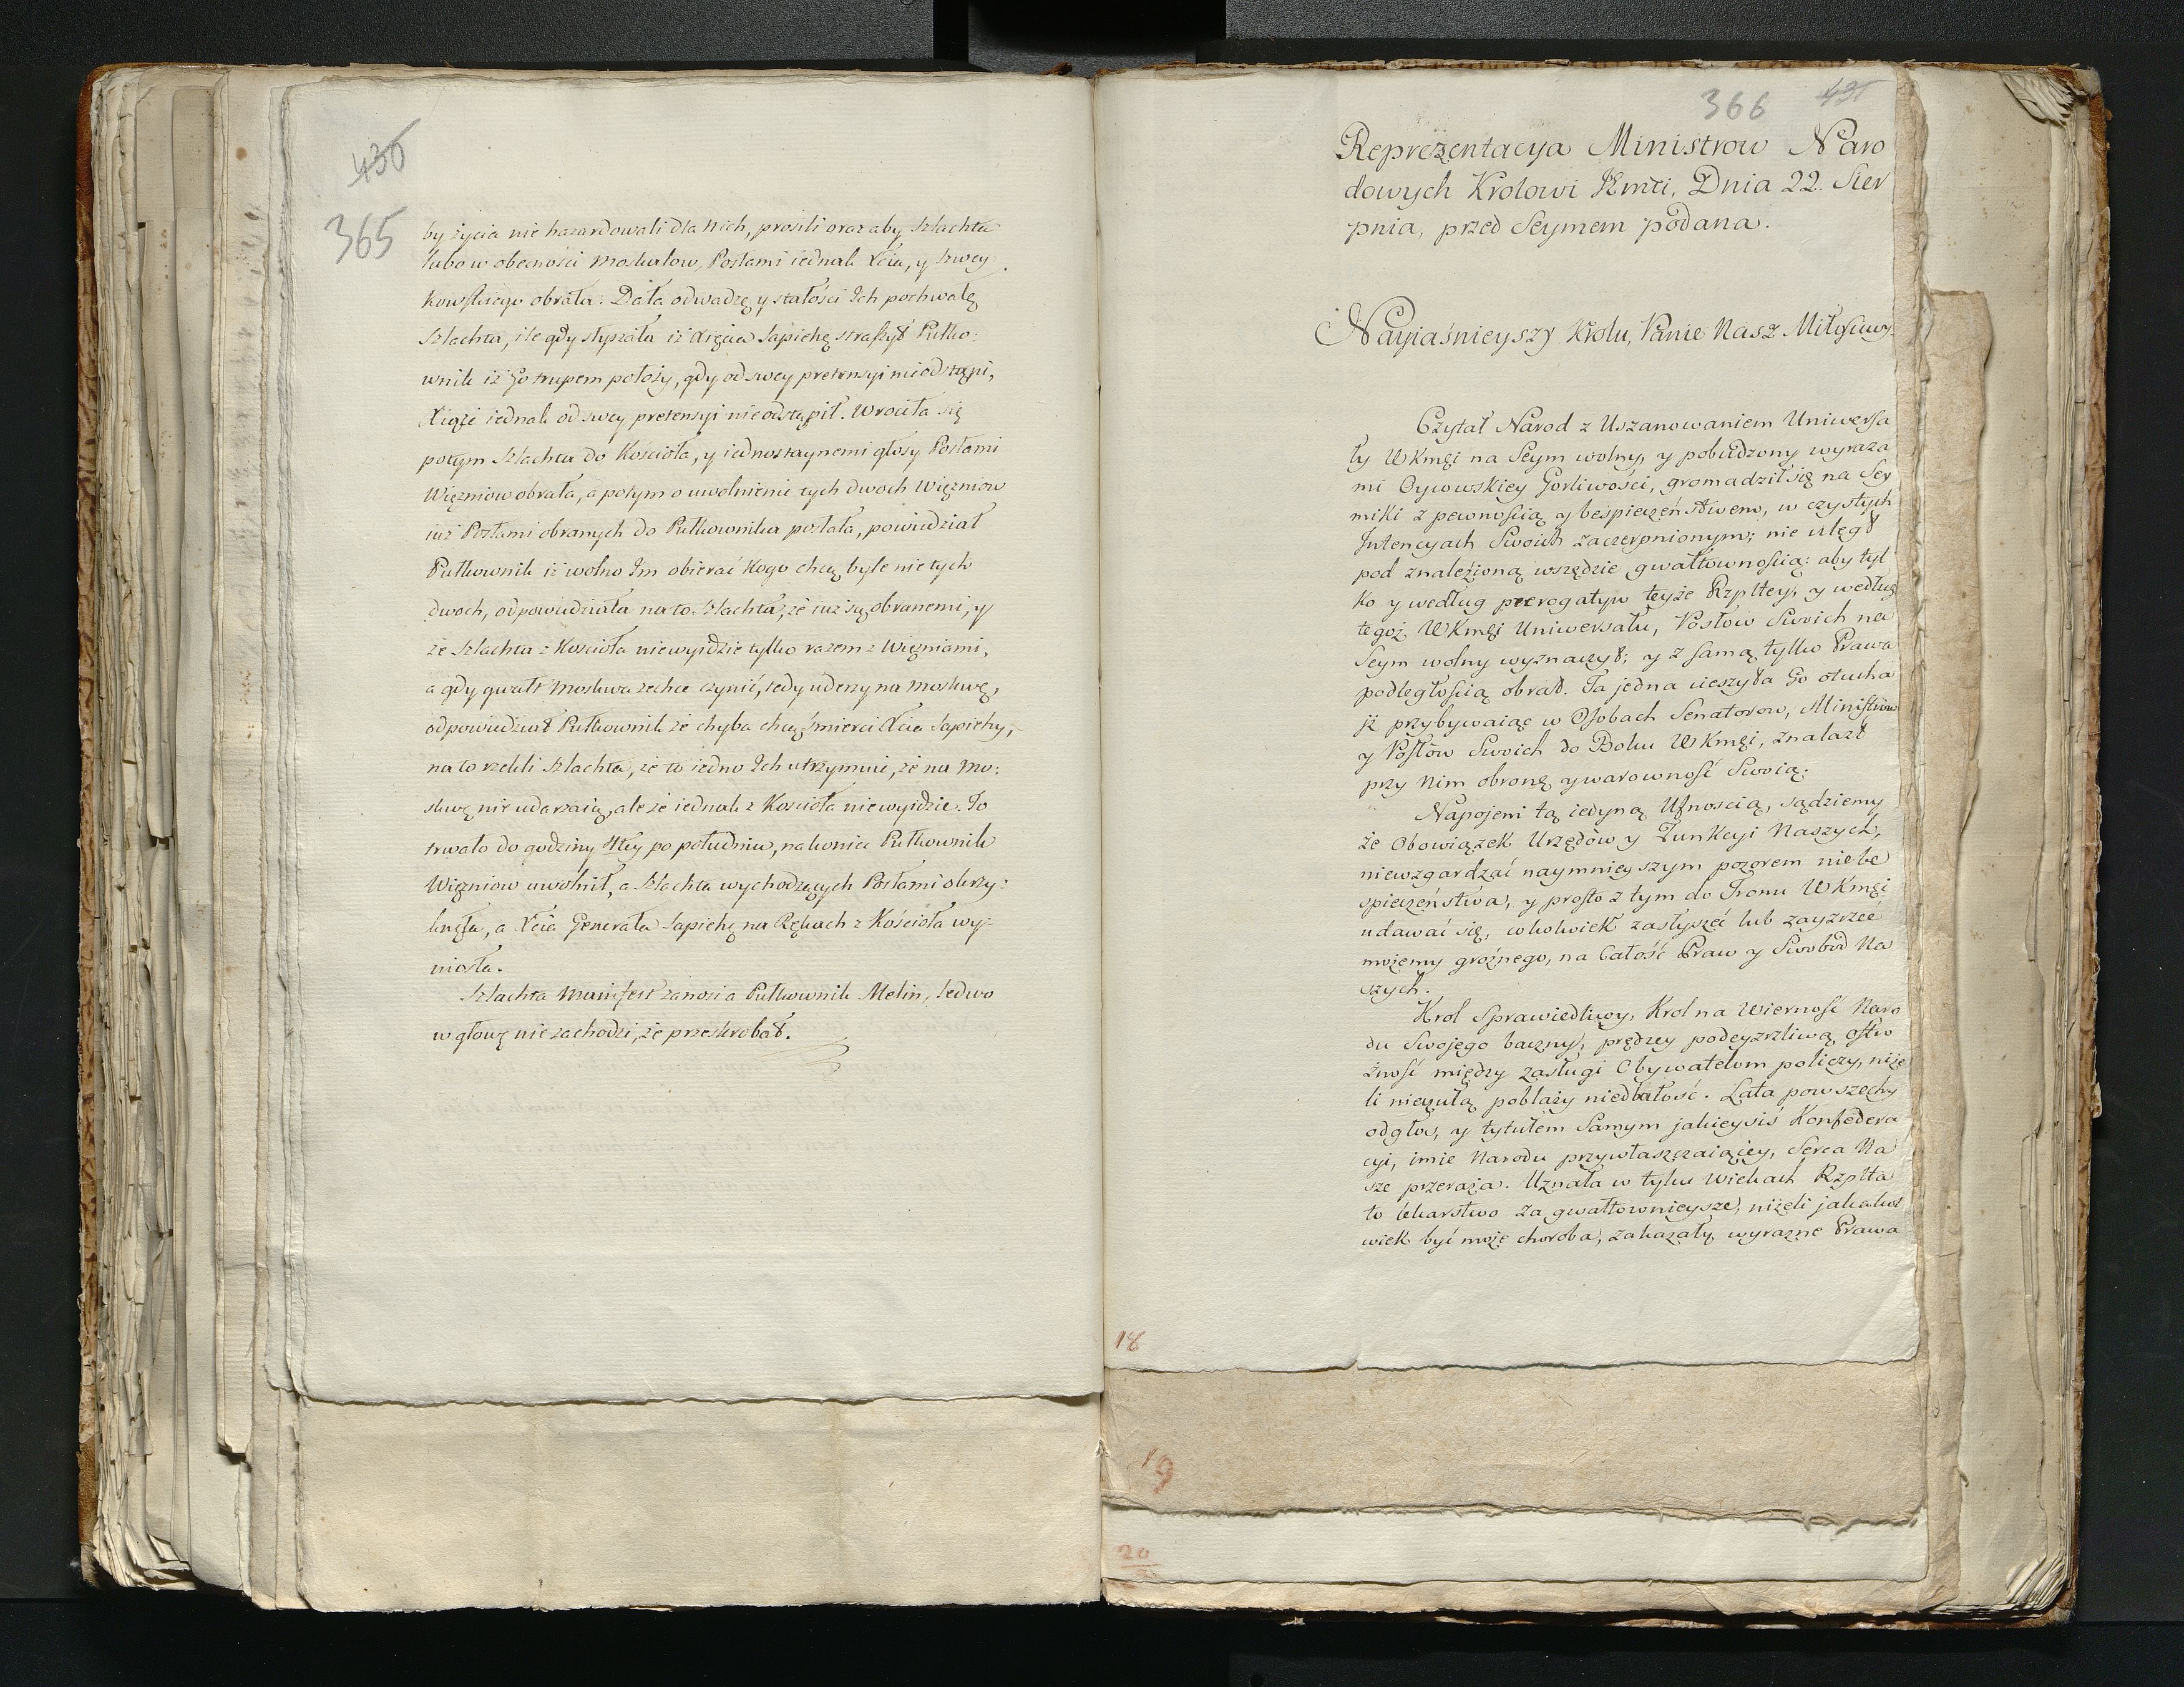 436
365
by życia nie hazardowali dla nich, prosili oraz aby Szlachta
lubo w obecności Moskalow, Posłami iednak Xcia, y Szwey:
kowskiego obrała: Dała odwadze y stałości Ich pochwałę
Szlachta, ile gdy słyszała iż Xięcia Sapiehę straszył Pułko:
wnik iż Go trupem położy, gdy od swey pretensyi nieodstąpi,
Xiąże iednak od swey pretensyi nieodstąpił. Wrociła się
potym Szlachta do Kościoła, y iednostaynemi głosy Posłami
Więzniow obrała, a potym o uwolnienie tych dwoch Więzniow
iuż Posłami obranych do Pułkownika posłała, powiedział
Pułkownik iż wolno Im obierać Kogo chcą byle nie tych
dwoch, odpowiedziała na to Szlachta, że iuż są obranemi, y
że Szlachta z Kościoła niewyidzie tylko razem z Więzniami,
a gdy gwałt Moskwa zechce czynić, tedy uderzy na Moskwę,
odpowiedział Pułkownik że chyba chcą śmierci Xcia Sapiehy,
na to rzekli Szlachta, że to iedno Ich utrzymuie, że na Mo:
skwę nie udarzaią, ale że iednak z Kościoła niewyidzie. To
trwało do godziny 4tey po południu, nakoniec Pułkownik
Więzniow uwolnił, a Szlachta wychodzących Posłami okrzy:
knęła, a Xcia Generała Sapiehę na Rękach z Kościoła wy:
niosła.
Szlachta Manifest zanosi a Pułkownik Melin, ledwo
w głowę nie zachodzi, że przeskrobał.
366 431
Reprezentacya Ministrow Naro
dowych Krolowi JKmci, Dnia 22. Sier
pnia, przed Seymem podana.
Nayiaśnieyszy Krolu, Panie Nasz Miłościwy.
Czytał Narod z Uszanowaniem Uniwersa
ły WKmći na Seym wolny, y pobudzony wyraza
mi Oycowskiey Gorliwości, gromadził się na Sey
miki z pewnością y bespieczeństwem, w czystych
Intencyach Swoich zaczerpnionym; nie uległ
pod znależioną wszędzie gwałtownością: aby tyl
ko y według prerogatyw teyże Rzpltey, y według
tegoż WKmći Uniwersału, Posłow Swoich na
Seym wolny wyznaczył; y z samą tylko Prawa
podległością obrał. Ta jedna cieszyła Go otucha
iż przybywaiąc w Osobach Senatorow, Ministrow
y Posłow Swoich do Boku WKmći, znalazł
przy Nim obronę y warowność Swoią.
Napojeni tą iedyną Ufnoscią, sądziemy
że Obowiązek Urzędow y Funkcyi Naszych,
niewzgardzać naymnieyszym pozorem niebe
spieczeństwa, y prosto z tym do Tronu WKmći
udawać się, cokolwiek zasłyszeć lub zayzrzeć
możemy groźnego, na Całość Praw y Swobod Na
szych.
Krol Sprawiedliwy, Krol na Wierność Naro
du Swojego baczny, prędzey podeyzrzliwą ostro
żność między zasługi Obywatelom policzy, niże
li nieczułą pobłaży niedbałość. Lata powszechy
odgłos, y tytułem Samym jakieysiś Konfedera
cyi, imie Narodu przywłaszczaiącey, Serca Na
sze przeraża. Uznała w tylu Wiekach Rzplta
to lekarstwo za gwałtownieysze, niżeli jakakol
wiek być może choroba, zakazały wyrazne Prawa
18
19
20